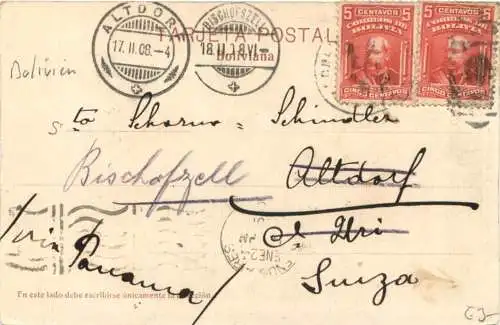 ALTDORF
17. II. 08. - 4
BISCHOFSZELL
18. II. 08. VI.
TARJETA POSTAL
Boliviana
5 CENTAVOS 5
CORREOS DE
BOLIVIA
CINCO CENTAVOS
5 CENTAVOS 5
CORREOS DE
BOLIVIA
CINCO CENTAVOS
Bolivien
Schorno - Schindler
Bischofzell
Altdorf
Uri
via Panama
Suiza
ENE 24
En este lado debe escribirse únicamente la dirección.